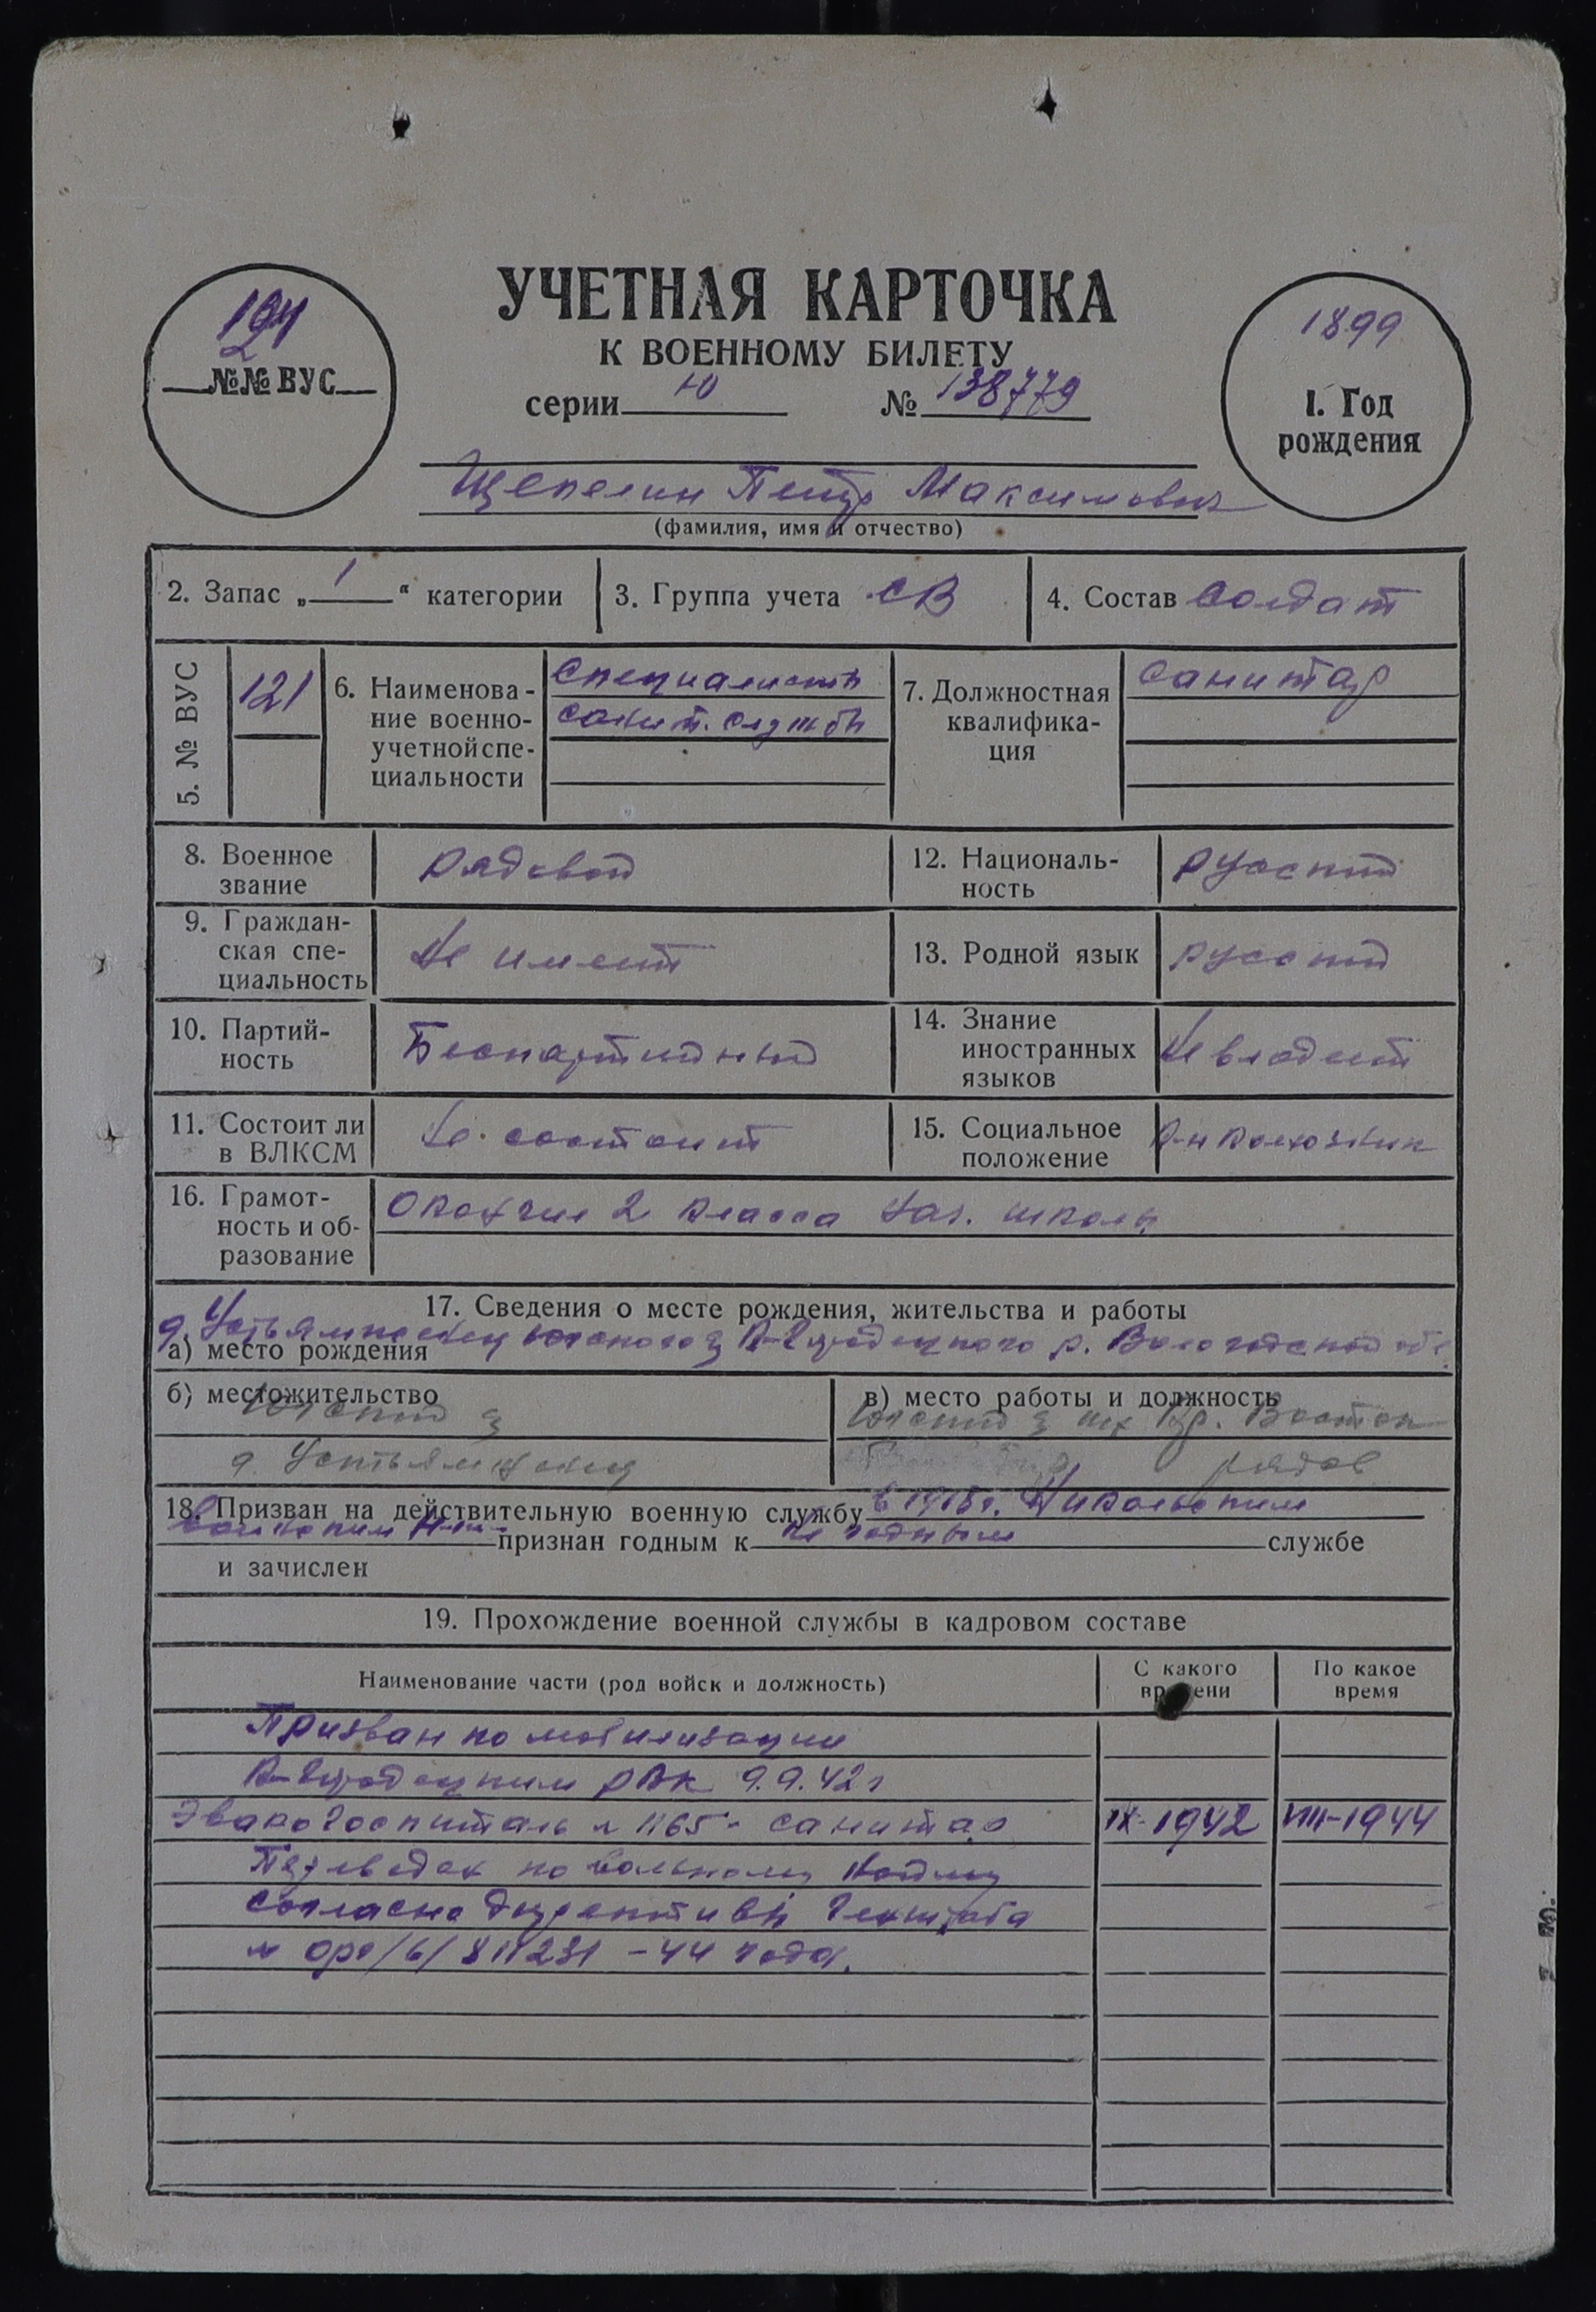 УЧЕТНАЯ КАРТОЧКА
К ВОЕННОМУ БИЛЕТУ
серии Ю № 138779
№№ ВУС
1899
1. Год
рождения
Щепелин Петр Максимович
(фамилия, имя и отчество)
2. Запас „ 1 “ категории
3. Группа учета СВ
4. Состав Солдат
5. № ВУС
121
6. Наименова-
ние военно-
учетной спе-
циальности
Специалисты
санит. службы
7. Должностная
квалифика-
ция
санитар
8. Военное
звание
рядовой
12. Националь-
ность
русский
9. Граждан-
ская спе-
циальность
Не имеет
13. Родной язык
русский
10. Партий-
ность
Беспартийный
14. Знание
иностранных
языков
Не владеет
11. Состоит ли
в ВЛКСМ
Не состоит
15. Социальное
положение
К-н колхозник
16. Грамот-
ность и об-
разование
Окончил 2 класса нач. школы
17. Сведения о месте рождения, жительства и работы
д. Устьямского К-Городецкого р. Вологодской обл.
а) место рождения
б) местожительство
д.
в) место работы и должность
к-з Кр. Восток
рядов
18. Призван на действительную военную службу в 1918 г. Никольским
воинским Н-м признан годным к не годным службе
и зачислен
19. Прохождение военной службы в кадровом составе
Наименование части (род войск и должность)
С какого
времени
По какое
время
Призван по мобилизации
К-Городецким РВК 9.9.42 г
Эвакогоспиталь № 1165 - санитар
IX-1942
VIII-1944
Переведен по вольному найму
согласно директивы Генштаба
№ орг/6/811231 - 44 года.